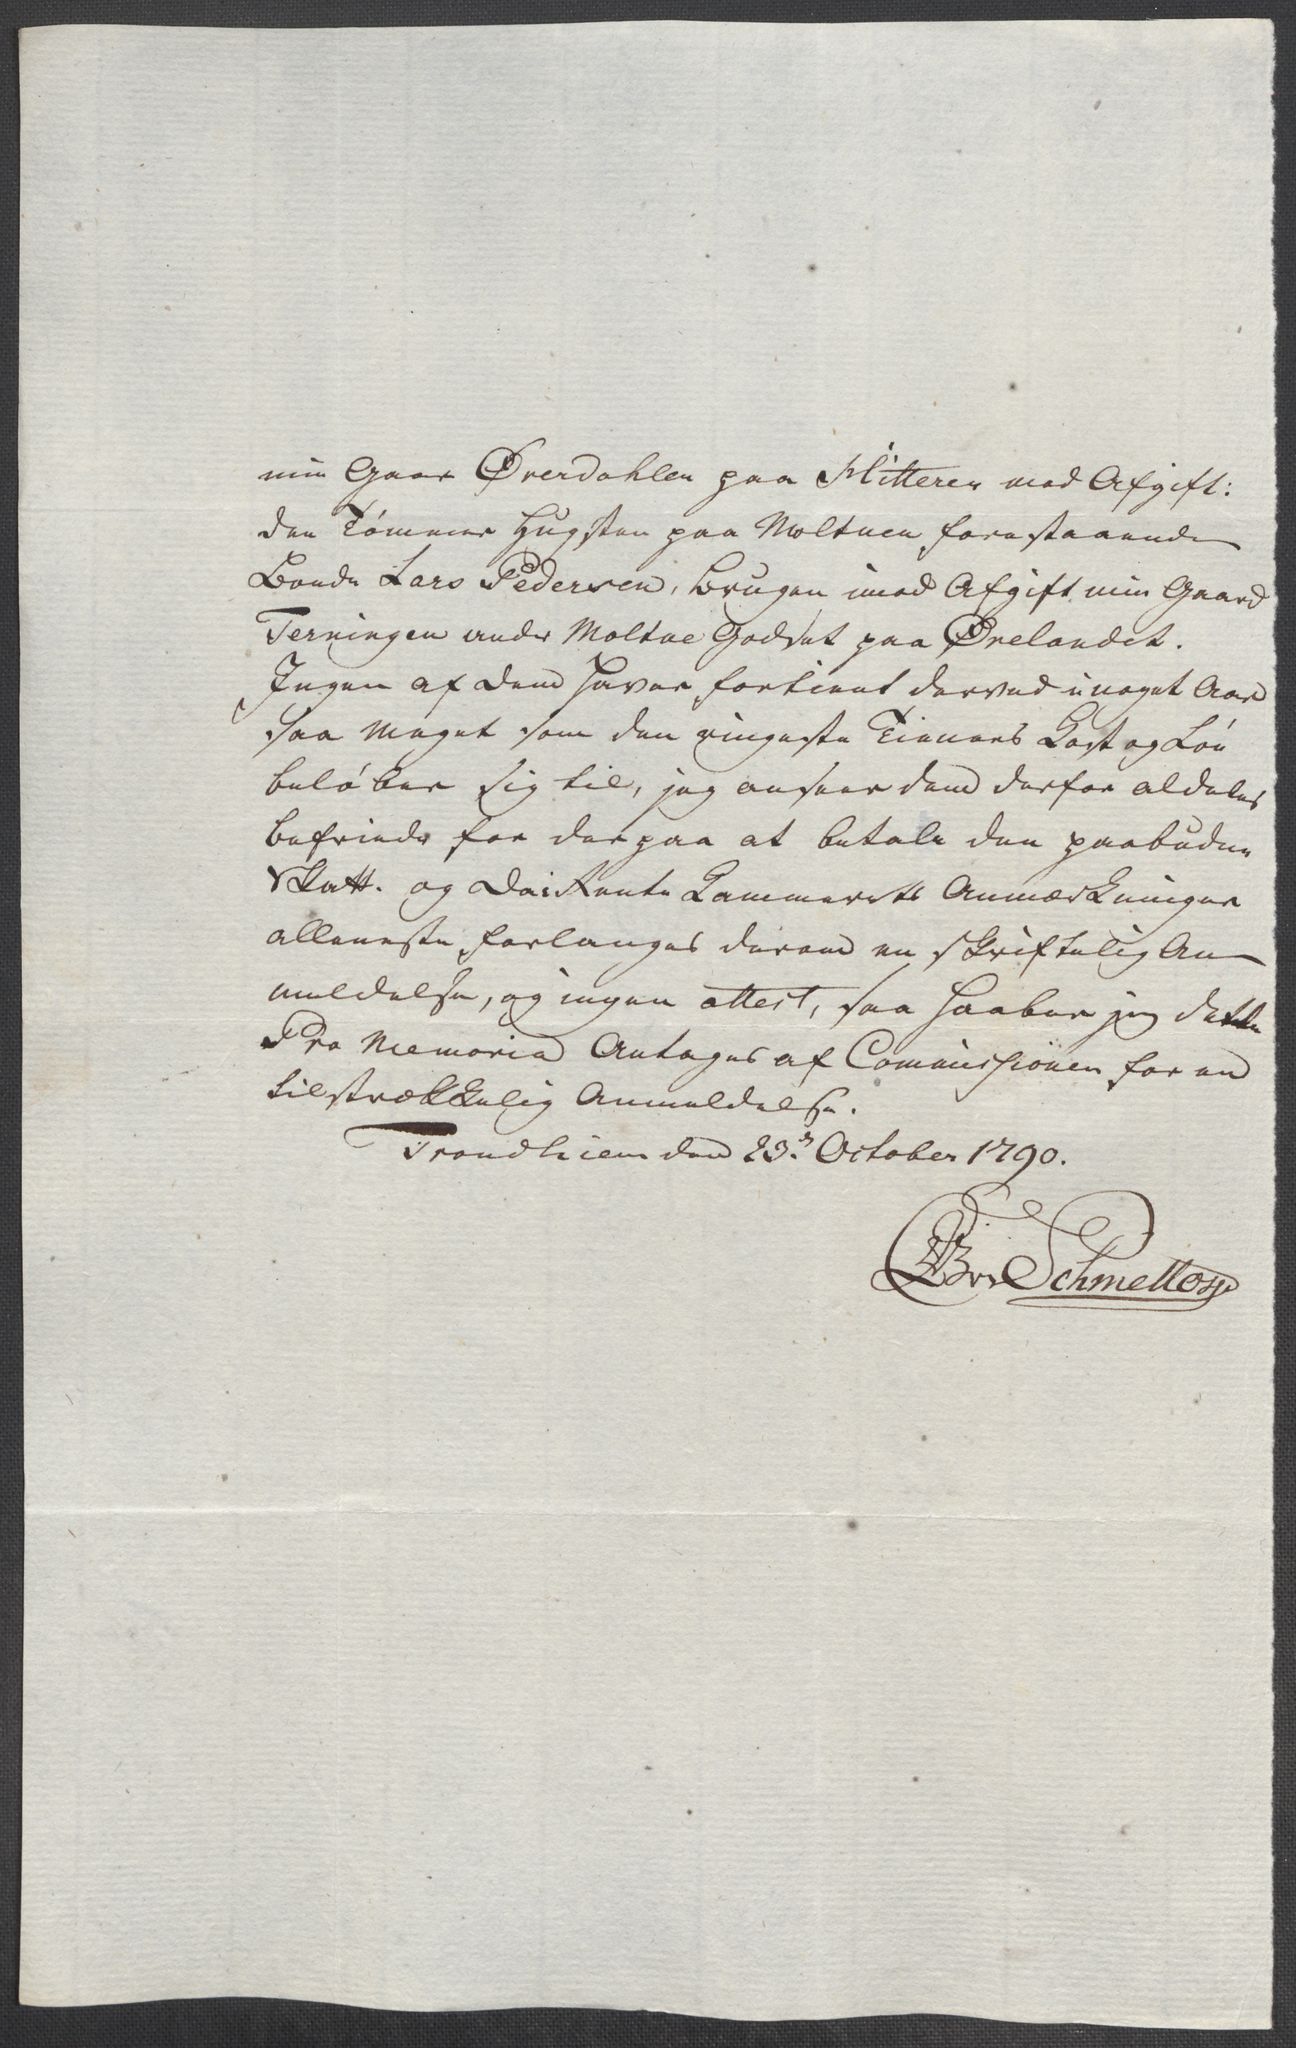 min Gaar Øverdahlen paa Hitteren mod Afgift:
den Tømmer Hugsten paa Moltuen forestaaende
Bonde Lars Pedersen, bruger imod Afgift min Gaard
Terningen under Moltue Godset paa Ørelandet.
Ingen af dem haver fortient derved i noget Aar
saa meget som den ringeste Tieners Kost og Løn
beløber sig til, jeg anseer dem derfor aldeles
befriede for derpaa at betale den paabudne
Skatt. og da Rente Kammerets Anmærkninger
alleneste forlanges derom en skriftelig An
meldelse, og ingen attest, saa haaber jeg dette
Pro Memoria Antages af Commissionen for en
tilstrækkelig Anmeldelse.
Trondhiem den 23. October 1790.
Schmettow